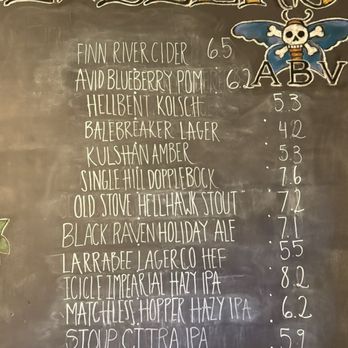 ABV
FINN RIVER CIDER 6.5
AVID BLUEBERRY POM 6.2
HELLBENT KOLSCH 5.3
BALEBREAKER LAGER 4.2
KULSHAN AMBER 5.3
SINGLE HILL DOPPLEBOCK 7.6
OLD STOVE HELLHAWK STOUT 7.2
BLACK RAVEN HOLIDAY ALE 7.1
LARRABEE LAGER CO HEF 5.5
ICICLE IMPEARIAL HAZY IPA 8.2
MATCHLESS HOPPER HAZY IPA 6.2
STOUP CITRA IPA 5.9